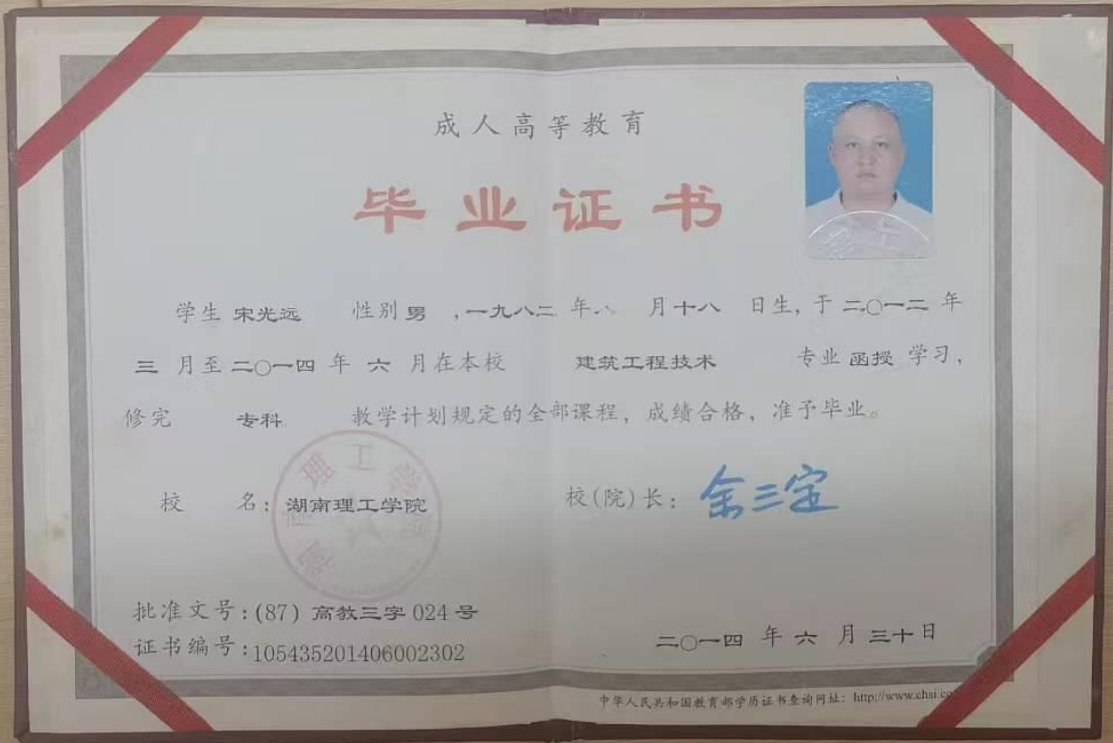 成人高等教育
毕业证书
学生 宋光远 性别 男 ,一九八二 年八 月十八 日生, 于 二〇一二 年
三 月至 二〇一四 年 六 月在本校 建筑工程技术 专业 函授 学习,
修完 专科 教学计划规定的全部课程, 成绩合格, 准予毕业。
校 名: 湖南理工学院 校(院)长: 余三定
湖南理工学院
批准文号:(87) 高教三字 024 号
证书编号:105435201406002302
二〇一四 年 六 月 三十日
中华人民共和国教育部学历证书查询网址: http://www.chsi.co